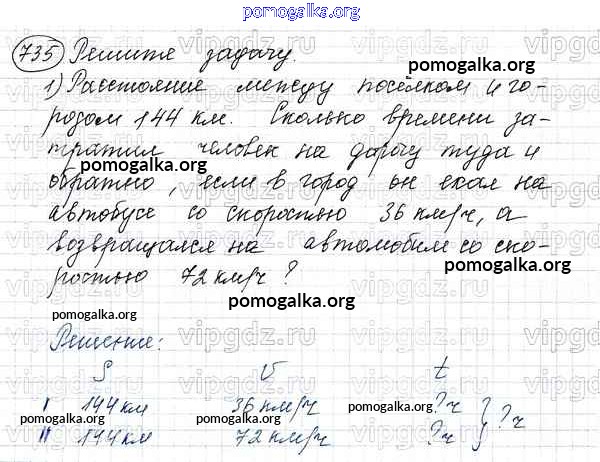 pomogalka.org
735 Решите задачу.
pomogalka.org
1) Расстояние между посёлком и го-
родом 144 км. Сколько времени за-
pomogalka.org
тратил человек на дорогу туда и
pomogalka.org
обратно, если в город он ехал на
автобусе со скоростью 36 км/ч, а
возвращался на автомобиле со ско-
ростью 72 км/ч?
pomogalka.org
pomogalka.org
pomogalka.org
Решение:
vipgdz.ru
S V t
I 144 км 36 км/ч ? ч } ? ч
pomogalka.org pomogalka.org pomogalka.org
II 144 км 72 км/ч ? ч